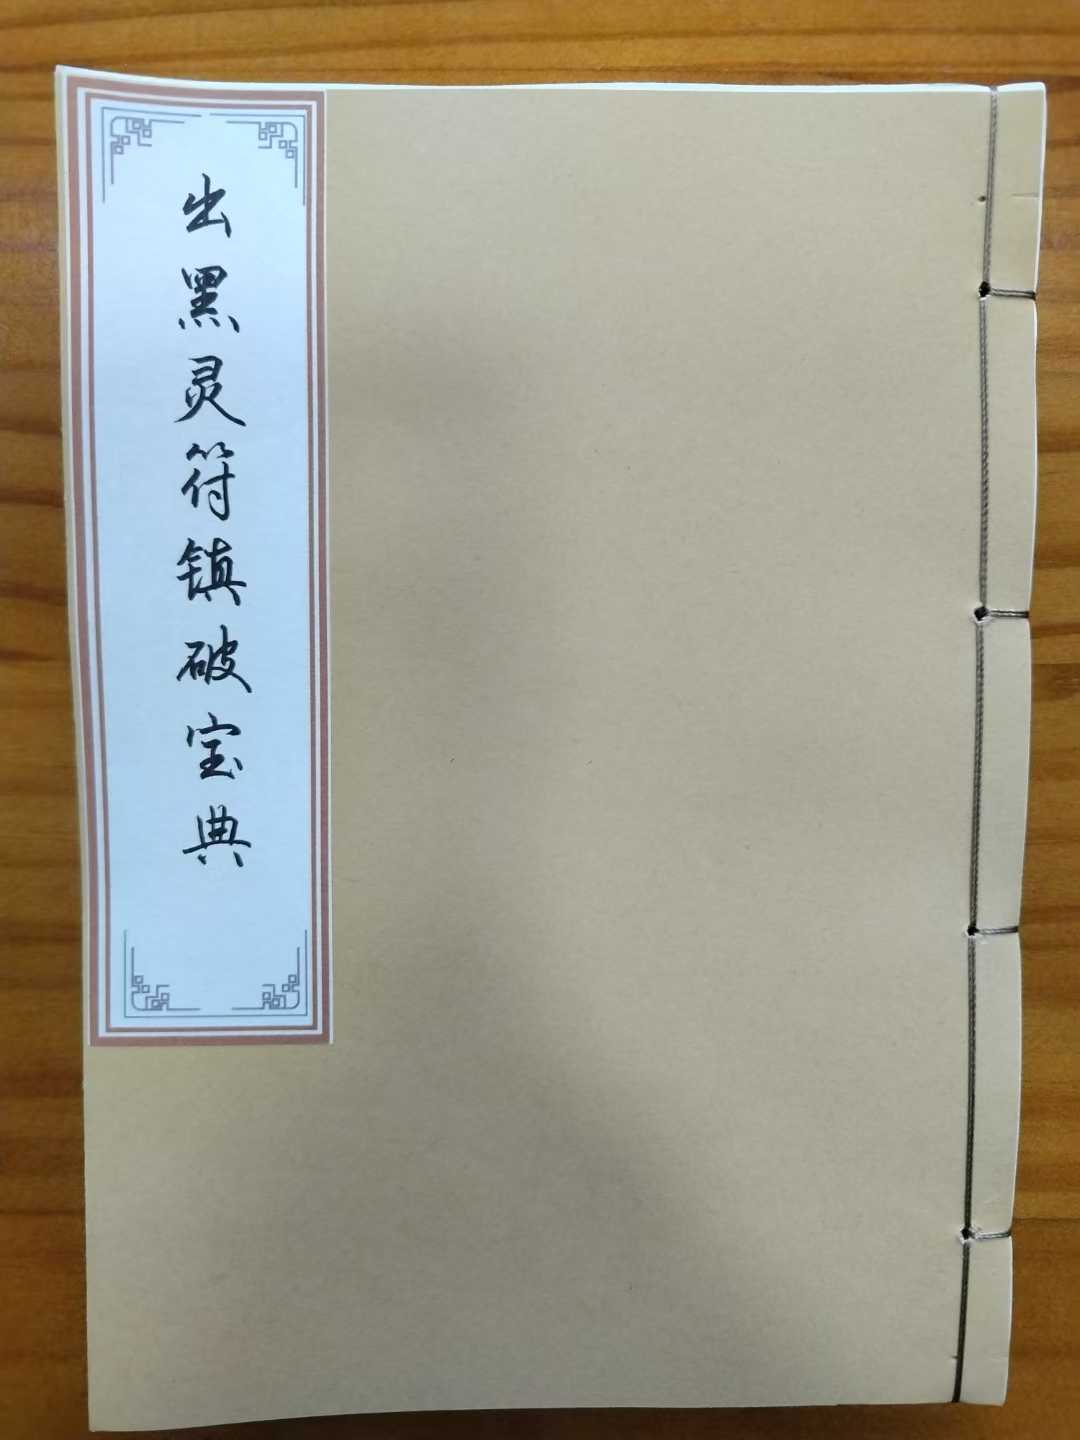 出黑灵符镇破宝典